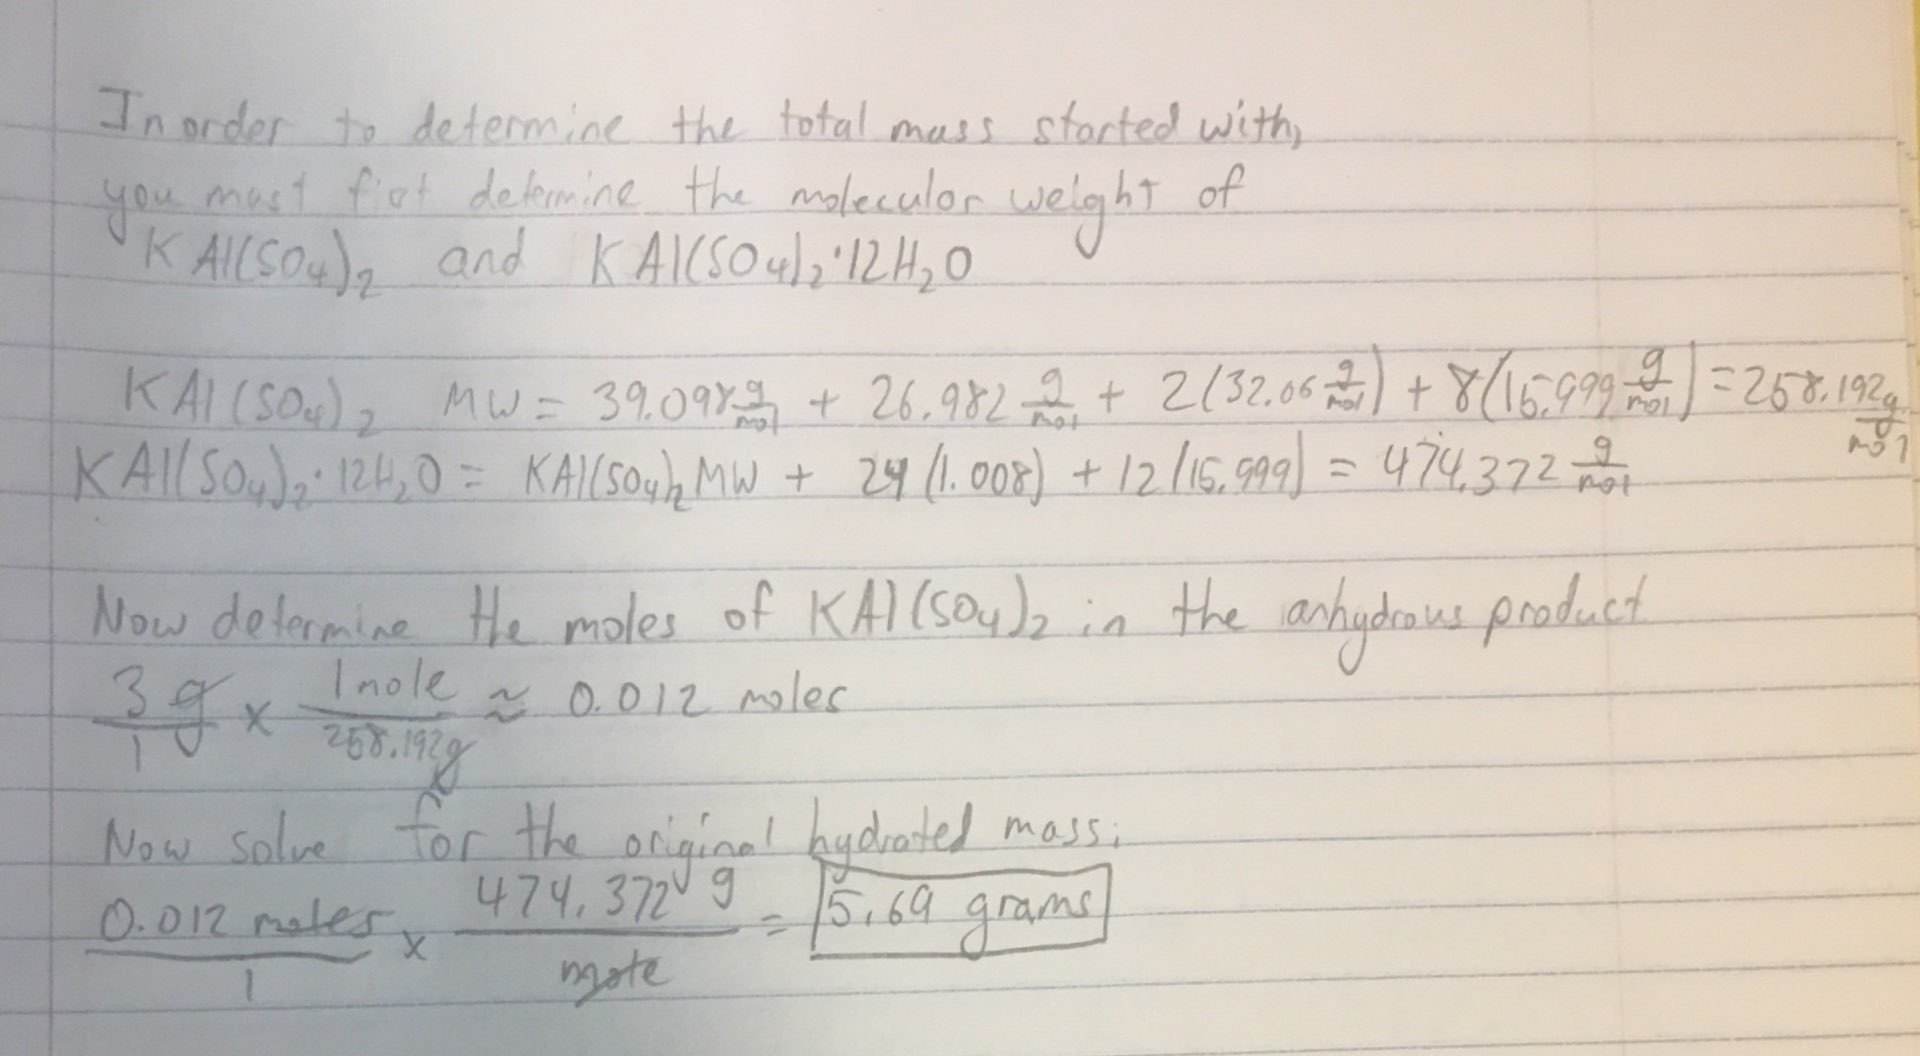 In order to determine the total mass started with,
you must first determine the molecular weight of
KAl(SO₄)₂ and KAl(SO₄)₂·12H₂O
KAl(SO₄)₂ MW = 39.098 g/mol + 26.982 g/mol + 2(32.06 g/mol) + 8(15.999 g/mol) = 258.192 g/mol
KAl(SO₄)₂·12H₂O = KAl(SO₄)₂ MW + 24(1.008) + 12(15.999) = 474.372 g/mol
Now determine the moles of KAl(SO₄)₂ in the anhydrous product
3 g/1 x 1 mole/258.192g ≈ 0.012 moles
Now solve for the original hydrated mass:
0.012 moles/1 x 474.372 g/mole = 5.69 grams